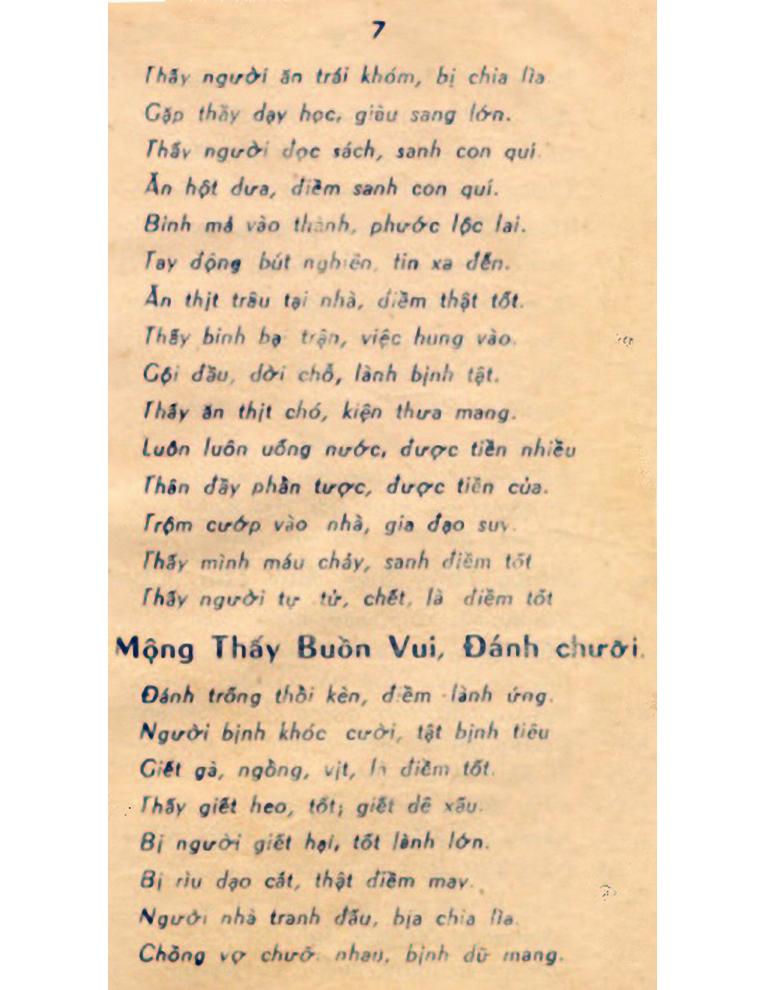 7
Thấy người ăn trái khóm, bị chia lìa
Gặp thầy dạy học, giàu sang lớn.
Thấy người đọc sách, sanh con quí.
Ăn hột dưa, điềm sanh con quí.
Binh mả vào thành, phước lộc lai.
Tay động bút nghiên, tin xa đến.
Ăn thịt trâu tại nhà, điềm thật tốt.
Thấy binh bạ trận, việc hung vào.
Gội đầu, dời chỗ, lành bịnh tật.
Thấy ăn thịt chó, kiện thưa mang.
Luôn luôn uống nước, được tiền nhiều
Thân đầy phần tược, được tiền của.
Trộm cướp vào nhà, gia đạo suy.
Thấy mình máu chảy, sanh điềm tốt
Thấy người tự tử, chết, là điềm tốt
Mộng Thấy Buồn Vui, Đánh chười.
Đánh trống thổi kèn, điềm lành ứng.
Người bịnh khóc cười, tật bịnh tiêu
Giết gà, ngỗng, vịt, là điềm tốt.
Thấy giết heo, tốt; giết dê xấu.
Bị người giết hại, tốt lành lớn.
Bị rìu dạo cắt, thật điềm may.
Người nhà tranh đấu, bịa chia lìa.
Chồng vợ chưỡi nhau, bịnh dữ mang.